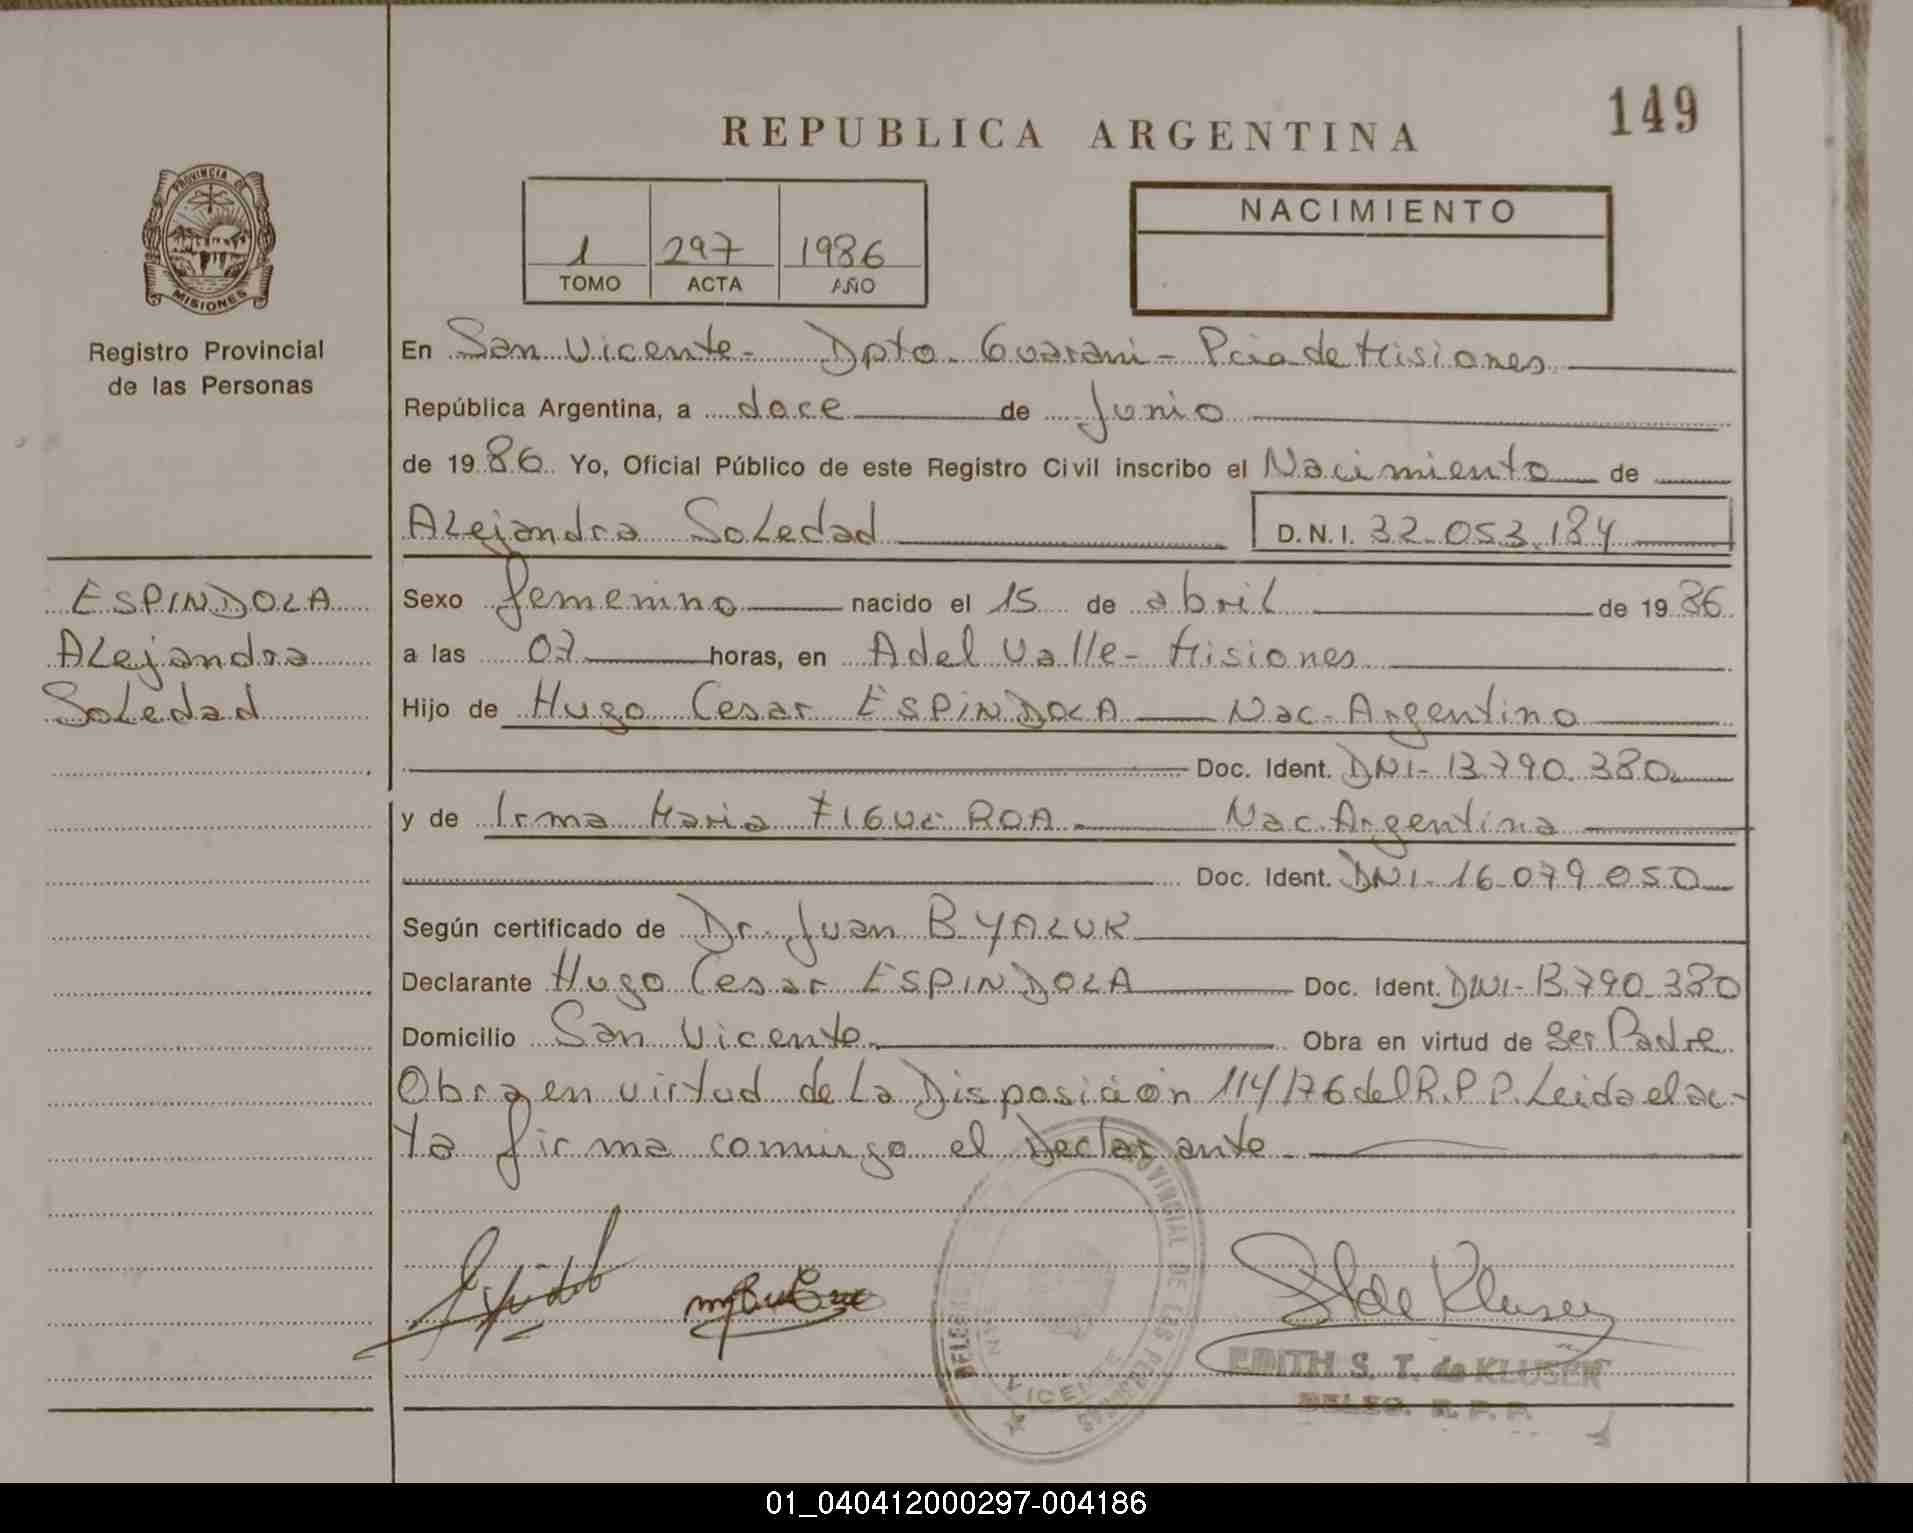 149
REPUBLICA ARGENTINA
PROVINCIA DE
MISIONES
1 297 1986
TOMO ACTA AÑO
NACIMIENTO
Registro Provincial
de las Personas
En San Vicente - Dpto Guarani - Pcia de Misiones
República Argentina, a doce de Junio
de 1986 Yo, Oficial Público de este Registro Civil inscribo el Nacimiento de
Alejandra Soledad D.N.I. 32.053.184
ESPINDOLA
Alejandra
Soledad
Sexo femenino nacido el 15 de abril de 1986
a las 07 horas, en Adel Valle - Misiones
Hijo de Hugo Cesar ESPINDOLA Nac- Argentino
Doc. Ident. DNI- 13.790.380
y de Irma Maria FIGUEROA Nac. Argentina
Doc. Ident. DNI- 16.079.050
Según certificado de Dr. Juan BYALUK
Declarante Hugo Cesar ESPINDOLA Doc. Ident. DNI- 13.790.380
Domicilio San Vicente Obra en virtud de Ser Padre
Obra en virtud de La Disposición 114/76 del R.P.P. Leida el ac-
ta firma conmigo el Declarante
PROVINCIAL DE LAS PERSONAS
VICENTE
EDITH S. T. de KLUSER
DELEG. R. P. P.
01_040412000297-004186